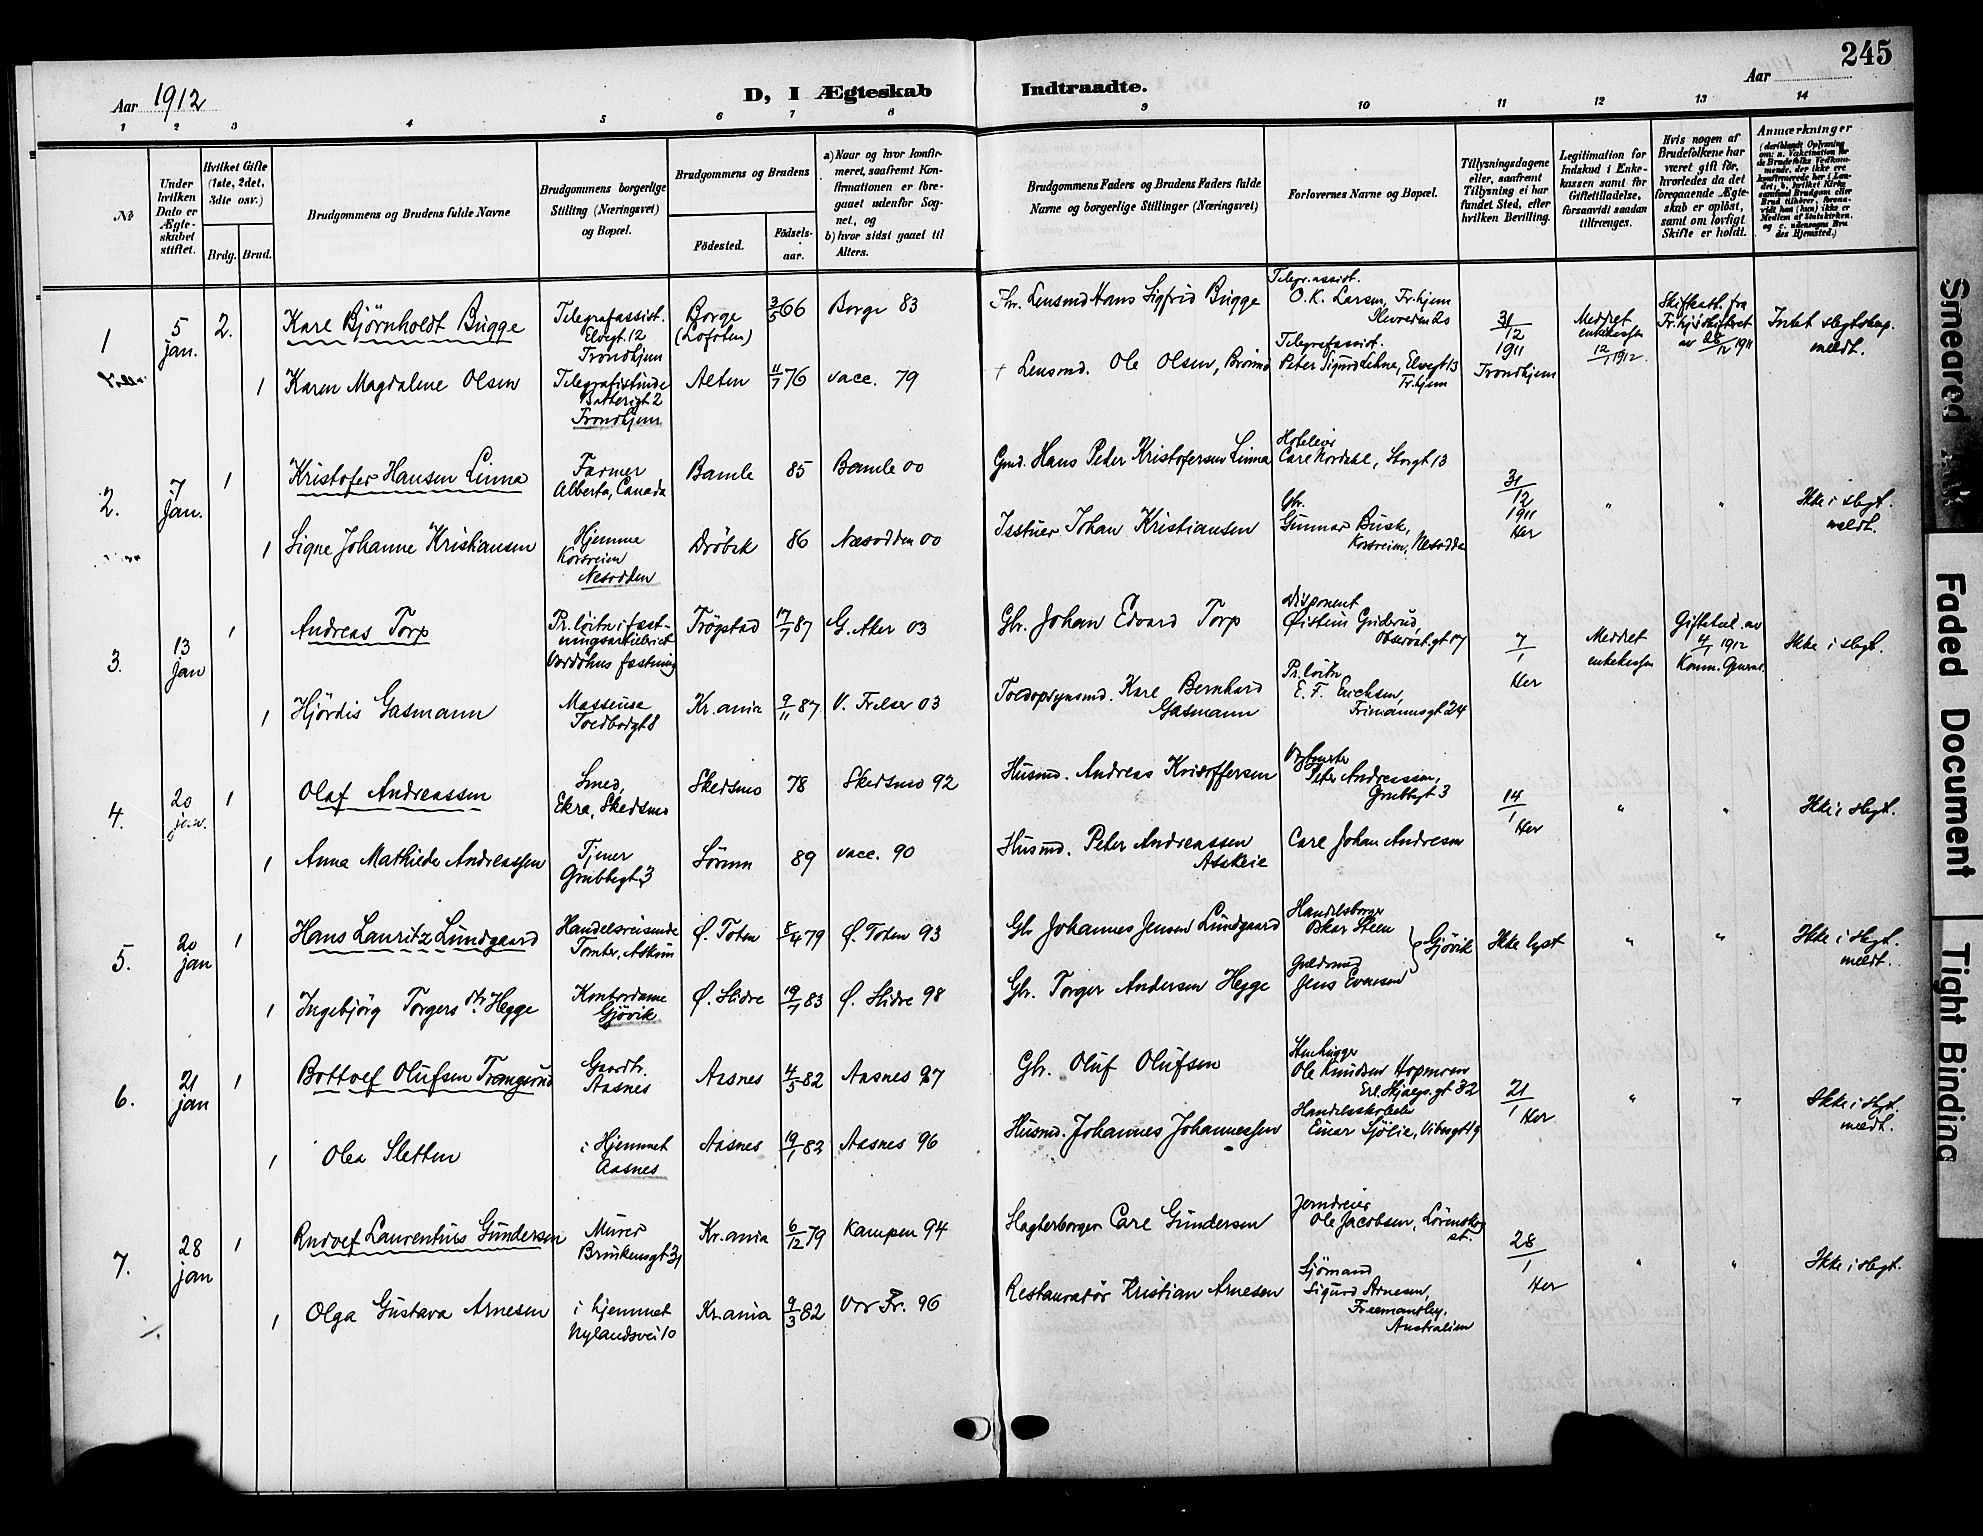 245
Aar 1912
D, I Ægteskab Indtraadte.
Aar
1 2 3 4 5 6 7 8 9 10 11 12 13 14
№
Under hvilken Dato er Ægteskabet stiftet.
Hvilket Gifte (1ste, 2det, 3die osv.)
Brdg. Brud.
Brudgommens og Brudens fulde Navne
Brudgommens borgerlige Stilling (Næringsvei) og Bopæl.
Brudgommens og Brudens
Födested.
Födselsaar.
a) Naar og hvor konfirmeret, saafremt Konfirmationen er foregaaet udenfor Sognet, og
b) hvor sidst gaaet til Alters.
Brudgommens Faders og Brudens Faders fulde Navne og borgerlige Stillinger (Næringsvei)
Forlovernes Navne og Bopæl.
Tillysningsdagene eller, saafremt Tillysning ei har fundet Sted, efter hvilken Bevilling.
Legitimation for Indskud i Enkekassen samt for Giftetilladelse, forsaavidt saadan tiltrænges.
Hvis nogen af Brudefolkene har været gift för, hvorledes da det foregaaende Ægteskab er oplöst, samt om lovligt Skifte er holdt.
Anmærkninger
(deriblandt Oplysning om: a. Vakcination for de Brudefolks Vedkommende, der ikke ere konfirmerede her i Landet; b. hvilket Kirkesamfund Brudgom eller Brud tilhörer, forsaavidt han (hun) ikke er Medlem af Statskirken, og c. udensogns Brudes Hjemsted.)
1 5 jan. 2. Karl Björnholdt Bugge
Telegrafassist. Elvegt. 12 Trondhjem
Borge (Lofoten) 3/5 66 Borge 83
Fhr. Lensmd Hans Sigfrid Bugge
Telegr.assist. O. K. Larsen, Tr.hjem
31/12 1911 Trondhjem
Meddelt enkekassen 12/1 1912.
Skifteatt. fra Tr.hj. skifteret av 28/12 1911
Intet slegtskap. meldt.
1 Karen Magdalene Olsen
Telegrafistinde Batterigt 2 Trondhjem
Alten 11/7 76 vacc. 79
+ Lensmd. Ole Olsen,
Telegrafassist. Peter Sigurd Lehne, Elvegt 13 Tr.hjem
2. 7 Jan. 1 Kristofer Hansen Linna
Farmer Alberta, Canada
Bamle 85 Bamle 00
Gmd. Hans Peder Kristofersen Linna
Hoteleier Carl Nordahl, Storgt 13
31/12 1911 Her
" "
Ikke i slegt. meldt.
1 Signe Johanne Kristiansen
Hjemme Korsveien Nesodden
Dröbak 86 Næsodden 00
Isstuer Johan Kristiansen
Gbr. Gunnar Busk, Korsveien, Nesodden
3. 13 Jan 1 Andreas Torp
Pr.löitn i fæstningsartilleriet Vardöhus fæstning
Trögstad 17/7 87 G. Aker 03
Gbr. Johan Edvard Torp
Disponent Öistein Griderud, Observat.gt 17
7/1 Her
Meddelt enkekassen
Giftetil. av 4/1 1912 Komm. General.
Ikke i slegt.
1 Hjördis Gasmann
Masseuse Toldbodgt 8
Kr.ania 9/11 87 V. Frelser 03
Toldopsynsmd. Karl Bernhard Gasmann
Pr.löitn. E. F. Erichsen, Frimannsgt 24
4. 20 jan. 1 Olaf Andreassen
Smed, Ekra, Skedsmo
Skedsmo 78 Skedsmo 92
Husmd. Andreas Kristoffersen
Peter Andreassen, Grubbegt 3
14/1 Her
" "
Ikke i slegt.
1 Anna Mathilde Andreassen
Tjener Grubbegt 3
Sörum 89 vacc. 90
Husmd. Peter Andreassen Askeie
Carl Johan Andresen
5. 20 jan 1 Hans Lauritz Lundgaard
Handelsreisende Tomter, Askim
Ø. Toten 8/4 79 Ø. Toten 93
Gbr Johannes Jensen Lundgaard
Handelsborger Oskar Steen
} Gjövik
Ikke lyst
" "
Ikke i slegt. meldt.
1 Ingebjörg Torgersdtr. Hegge
Kontordame Gjövik
Ø. Slidre 19/1 83 Ø. Slidre 98
Gbr. Torger Andersen Hegge
Guldsmed Jens Evensen
6. 21 jan 1 Bottolf Olufsen Trangsrud
Gaardbr. Aasnes
Aasnes 4/5 82 Aasnes 97
Gbr. Oluf Olufsen
Stenhugger Ole Knudsen Hopmoen Erl. Skjalgs. gt 32
21/1 Her
" "
Ikke i slegt. meldt.
1 Olea Sletten
i Hjemmet Aasnes
Aasnes 19/1 82 Aasnes 96
Husmd. Johannes Johannessen
Handelsskoleelev Einar Sjölie, Vibesgt 19
7. 28 jan 1 Rudolf Laurentius Gundersen
Murer Brinkensgt 31
Kr.ania 6/12 79 Kampen 94
Slagterborger Carl Gundersen
Jerndreier Ole Jacobsen, Lörenskog st.
28/1 Her
" "
Ikke i slegt.
1 Olga Gustava Arnesen
i hjemmet Nylandsvei 10
Kr.ania 9/3 82 Vor Fr. 96
Restauratör Kristian Arnesen
Sjömand Sigurd Arnesen, Freemantley, Australien
Smeared Ink
Faded Document
Tight Binding